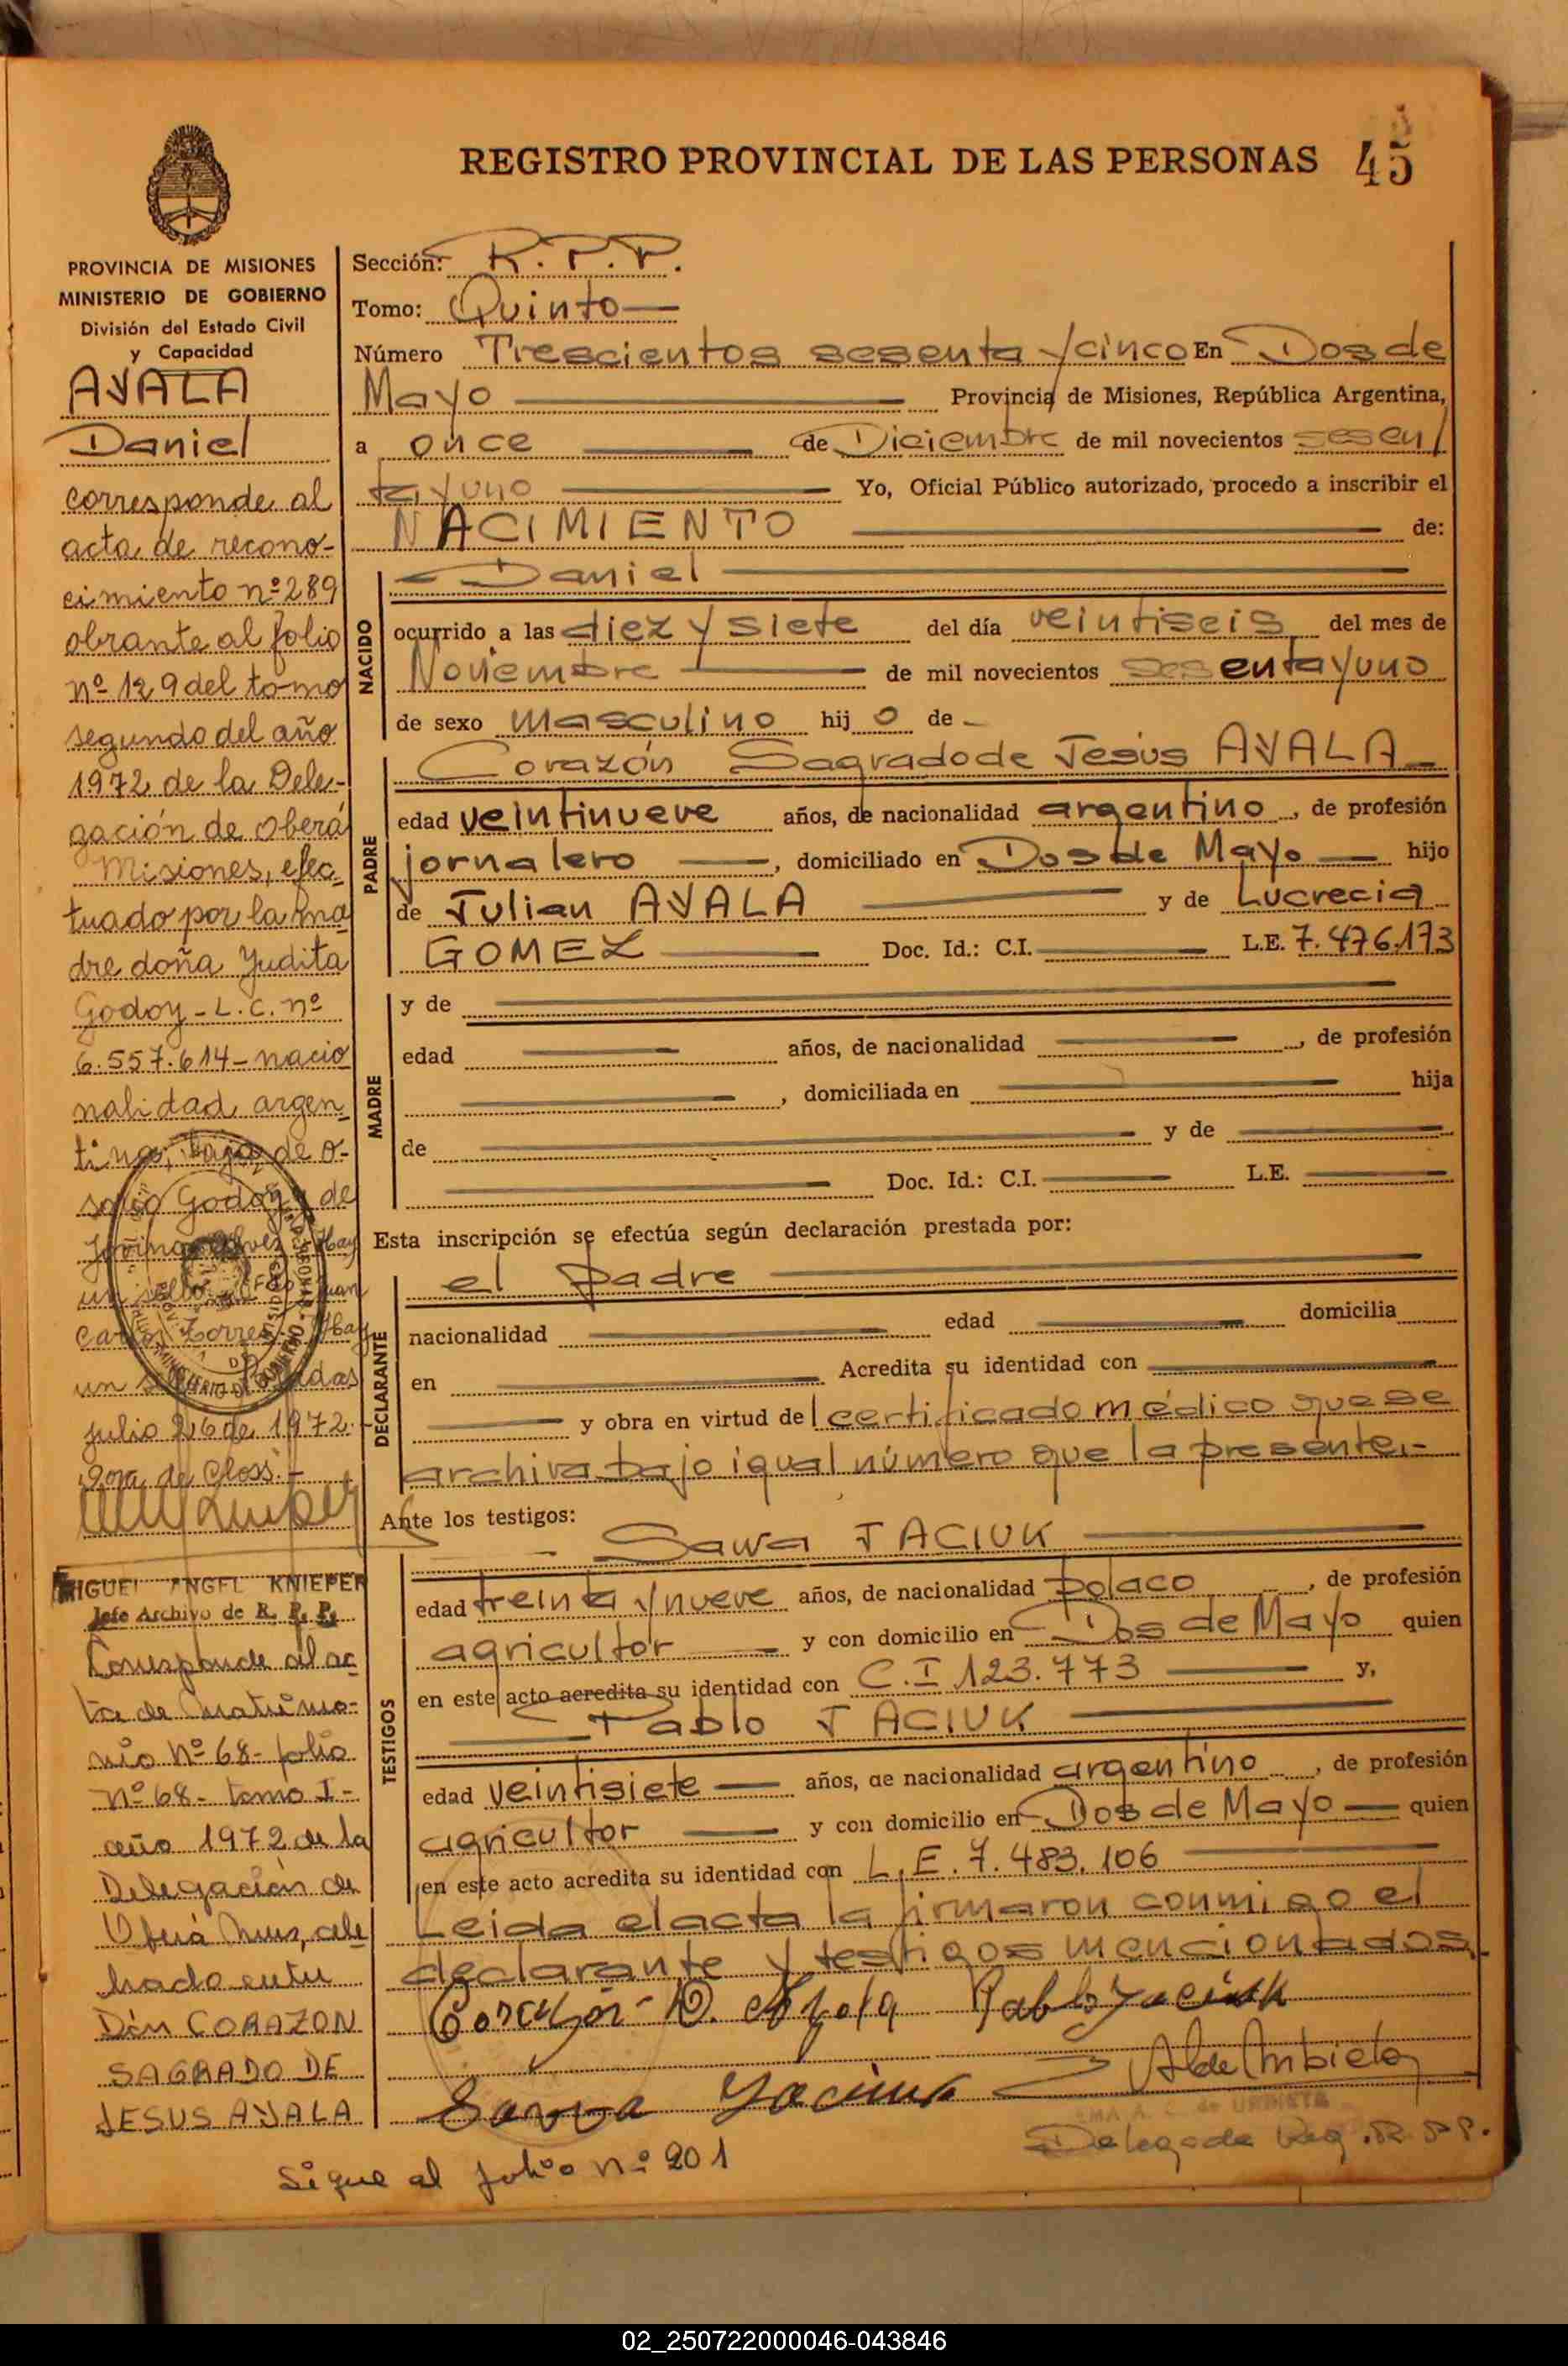 REGISTRO PROVINCIAL DE LAS PERSONAS 45
PROVINCIA DE MISIONES
MINISTERIO DE GOBIERNO
División del Estado Civil
y Capacidad
AYALA
Daniel
corresponde al
acta de recono-
cimiento nº 289
obrante al folio
nº 129 del tomo
segundo del año
1972 de la Dele-
gación de Oberá
Misiones, efec-
tuado por la ma
dre doña Yudita
Godoy - L. C. nº
6.557.614 - nacio
nalidad argen
tina, hija de O-
Godoy y de
Hay
un sello Juan
Carlos Torres. Hay
un sello Posadas
julio 26 de 1972.
MIGUEL ANGEL KNIEPER
Jefe Archivo de R. P. P.
Corresponde al ac
ta de Matrimo-
nio Nº 68 - folio
Nº 68 - tomo I -
año 1972 de la
Delegación de
Oberá Mnes, cele
brado entre
Dón CORAZON
SAGRADO DE
JESUS AYALA
Sección: R. P. P.
Tomo: Quinto
Número Trescientos sesenta y cinco En Dos de
Mayo Provincia de Misiones, República Argentina,
a once de Diciembre de mil novecientos sesen/
ta y uno Yo, Oficial Público autorizado, procedo a inscribir el
NACIMIENTO de:
NACIDO
Daniel
ocurrido a las diez y siete del día veintiseis del mes de
Noviembre de mil novecientos sesenta y uno
de sexo masculino hij o de
PADRE
Corazón Sagrado de Jesús AYALA
edad veintinueve años, de nacionalidad argentino, de profesión
jornalero, domiciliado en Dos de Mayo hijo
de Julian AYALA y de Lucrecia
GOMEZ Doc. Id.: C.I. L.E. 7.476.173
MADRE
y de
edad años, de nacionalidad, de profesión
, domiciliada en hija
de y de
Doc. Id.: C.I. L.E.
Esta inscripción se efectúa según declaración prestada por:
DECLARANTE
el padre
nacionalidad edad domicilia
en Acredita su identidad con
y obra en virtud del certificado médico que se
archiva bajo igual número que la presente.-
Ante los testigos:
TESTIGOS
Sawa JACIUK
edad treinta y nueve años, de nacionalidad polaco, de profesión
agricultor y con domicilio en Dos de Mayo quien
en este acto acredita su identidad con C.I 123.773 y,
Pablo JACIUK
edad veintisiete años, de nacionalidad argentino, de profesión
agricultor y con domicilio en Dos de Mayo quien
en este acto acredita su identidad con L.E. 7.483.106
Leida el acta la firmaron conmigo el
declarante y testigos mencionados
Pablo Jaciuk
Sawa Jaciuk
Sigue al folio nº 201
02_250722000046-043846